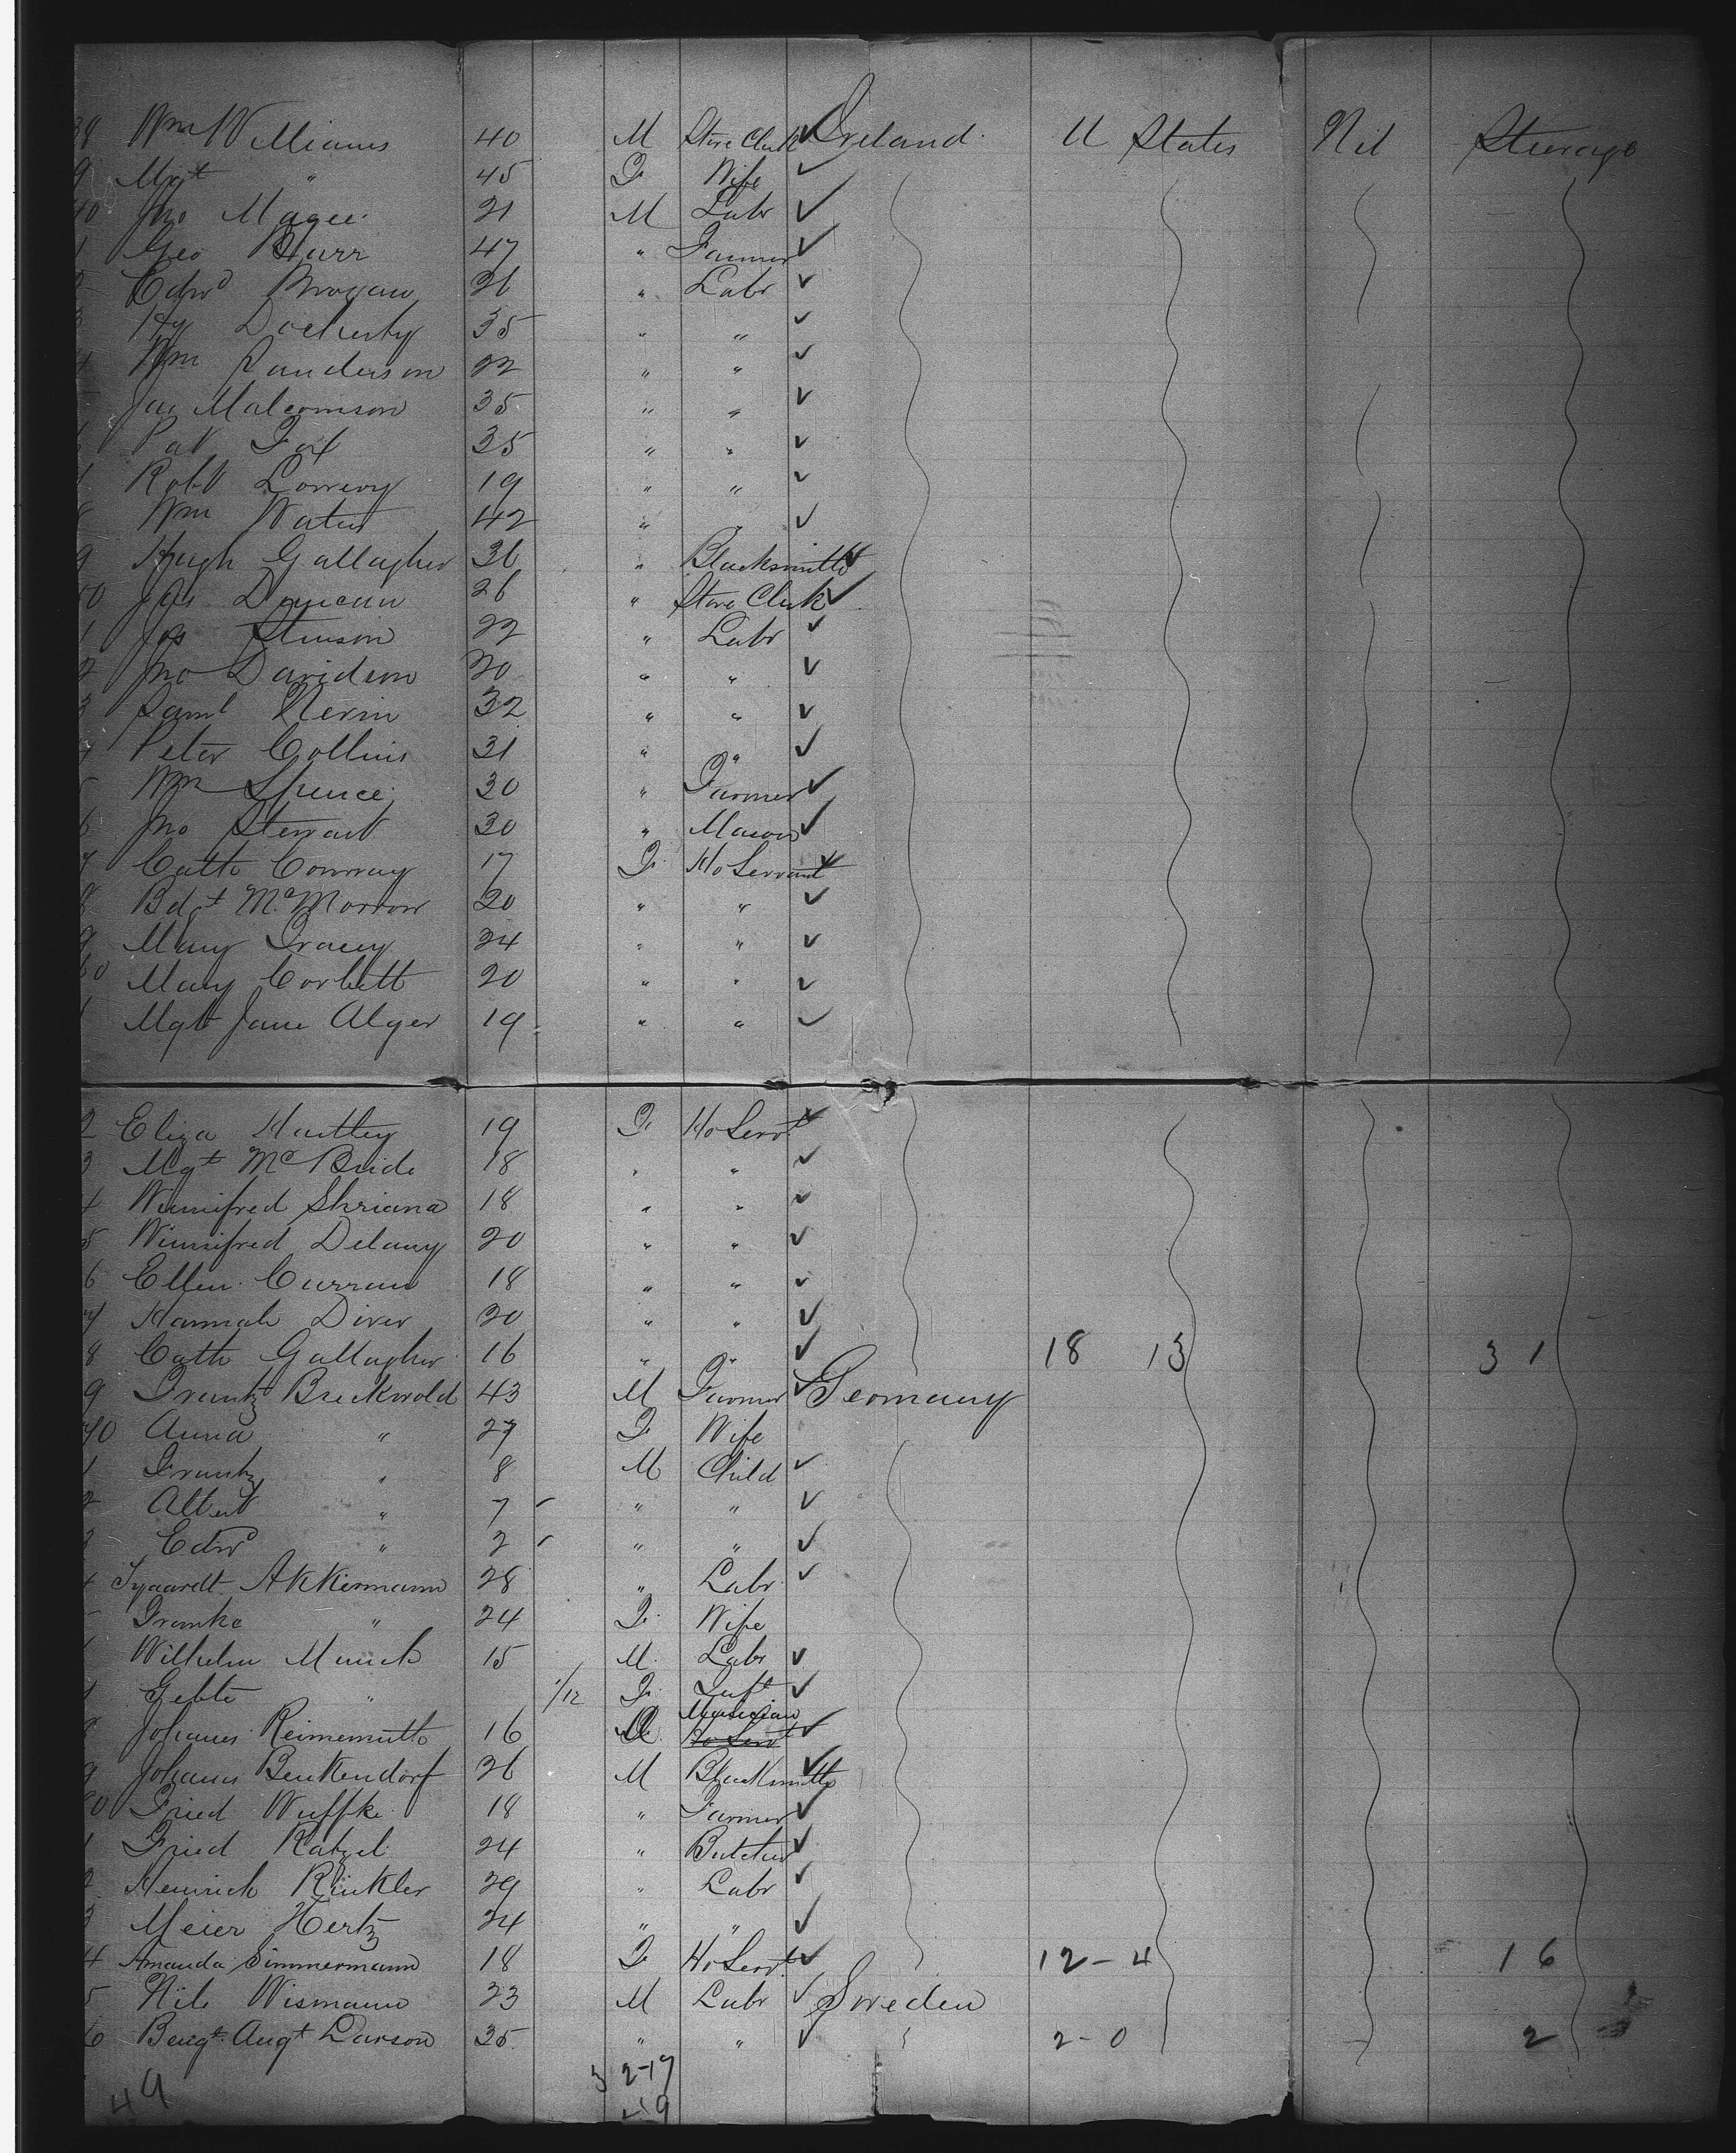 38 Wm Williams 40 M Store Clerk Ireland U States Nil Steerage
9 Mgt " 45 F Wife
40 Jno Magee 21 M Labr
1 Geo Barr 47 " Farmer
2 Edwd Brogan 26 " Labr
3 Hy Docherty 35 " "
4 Wm Sanderson 22 " "
5 Jas Malcomson 35 " "
6 Pat Fox 35 " "
Robt Conway 19 " "
8 Wm Waters 42 " "
9 Hugh Gallagher 36 " Blacksmith
50 Jas Duncan 26 " Store Clerk
1 Jos Stinson 22 " Labr
2 Jno Davidson 20 " "
3 Saml Nevin 32 " "
4 Peter Collins 31 " "
5 Wm Spence 30 " Farmer
6 Jno Stewart 30 " Mason
7 Cath Conway 17 F Ho Servant
8 Bdgt McMorrow 20 " "
9 Mary Tracey 24 " "
60 Mary Corbett 20 " "
1 Mgt Jane Alger 19 " "
2 Eliza Hartley 19 F Ho Servt
3 Mgt McBride 18 " "
4 Winnifred Shriana 18 " "
5 Winnifred Delany 20 " "
6 Ellen Curran 18 " "
7 Hannah Diver 20 " "
8 Cath Gallagher 16 " " 18 13 31
9 Frantz Breckwold 43 M Farmer Germany
70 Anna " 27 F Wife
1 Frantz " 8 M Child
2 Albert " 7 " "
3 Edwd " 2 " "
4 Akkermann 28 " Labr
5 " 24 F Wife
Wilhelm Munch 15 M Labr
" 1/12 F Inft
8 Johannes 16 Musician
9 Johann Benkendorf 26 M Blacksmith
80 Fried Wuffke 18 " Farmer
1 Fried Ratzel 24 " Butcher
2 Heinrich Rinkler 29 " Labr
3 Meier Hertz 24 " "
4 Amanda Simmermann 18 F Ho Servt 12-4 16
5 Nils Wismann 23 M Labr Sweden
6 Bengt Augt Larson 35 " " 2-0 2
3 2-17
49